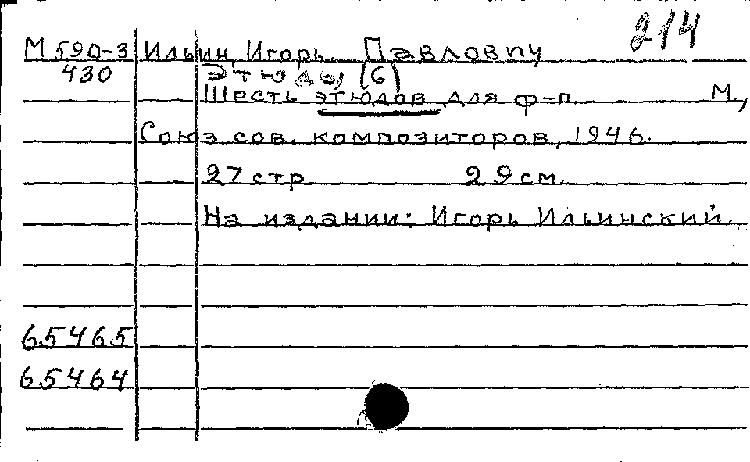 214
М 590-3 Ильин, Игорь Павлович
430 Этюды (6)
Шесть этюдов для ф-п. М.,
Союз сов. композиторов, 1946.
27 стр 29 см.
На издании: Игорь Ильинский.
65465
65464